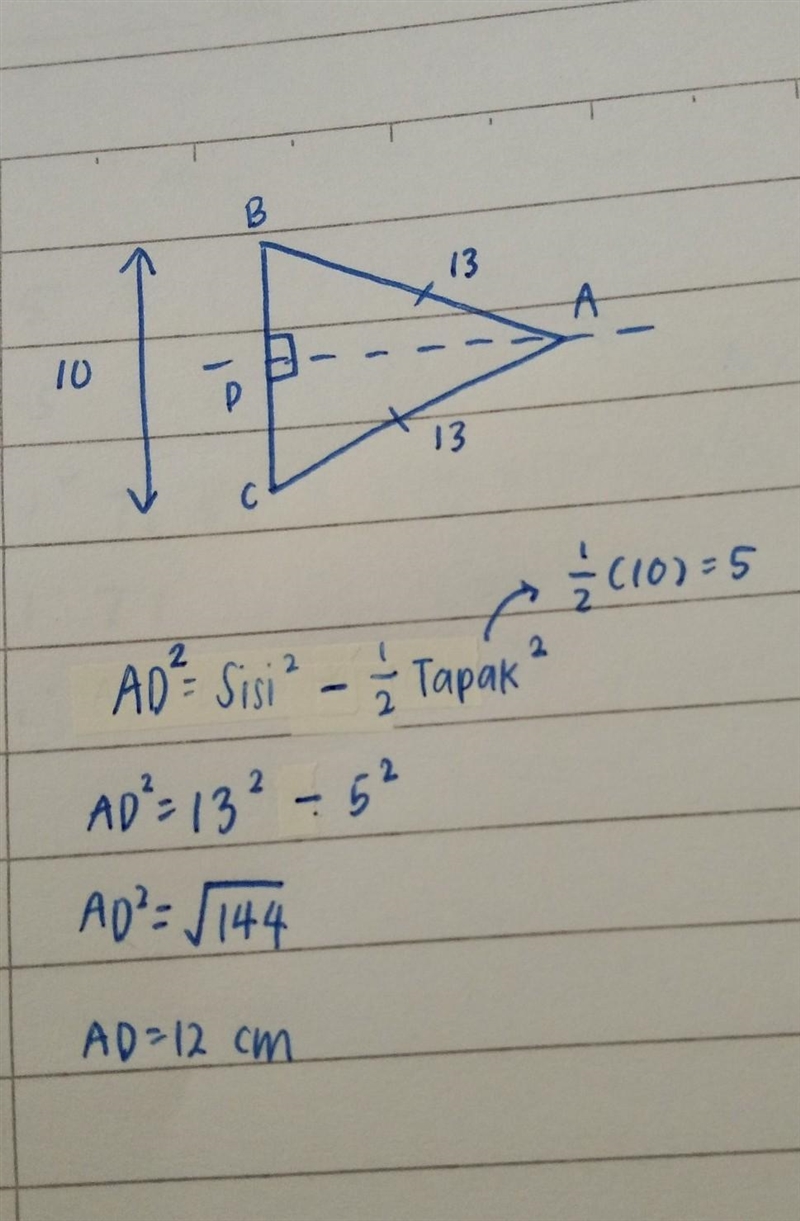 B
13
A
10
D
13
C
1/2 (10) = 5
AD² = Sisi² - 1/2 Tapak²
AD² = 13² - 5²
AD² = √144
AD = 12 cm